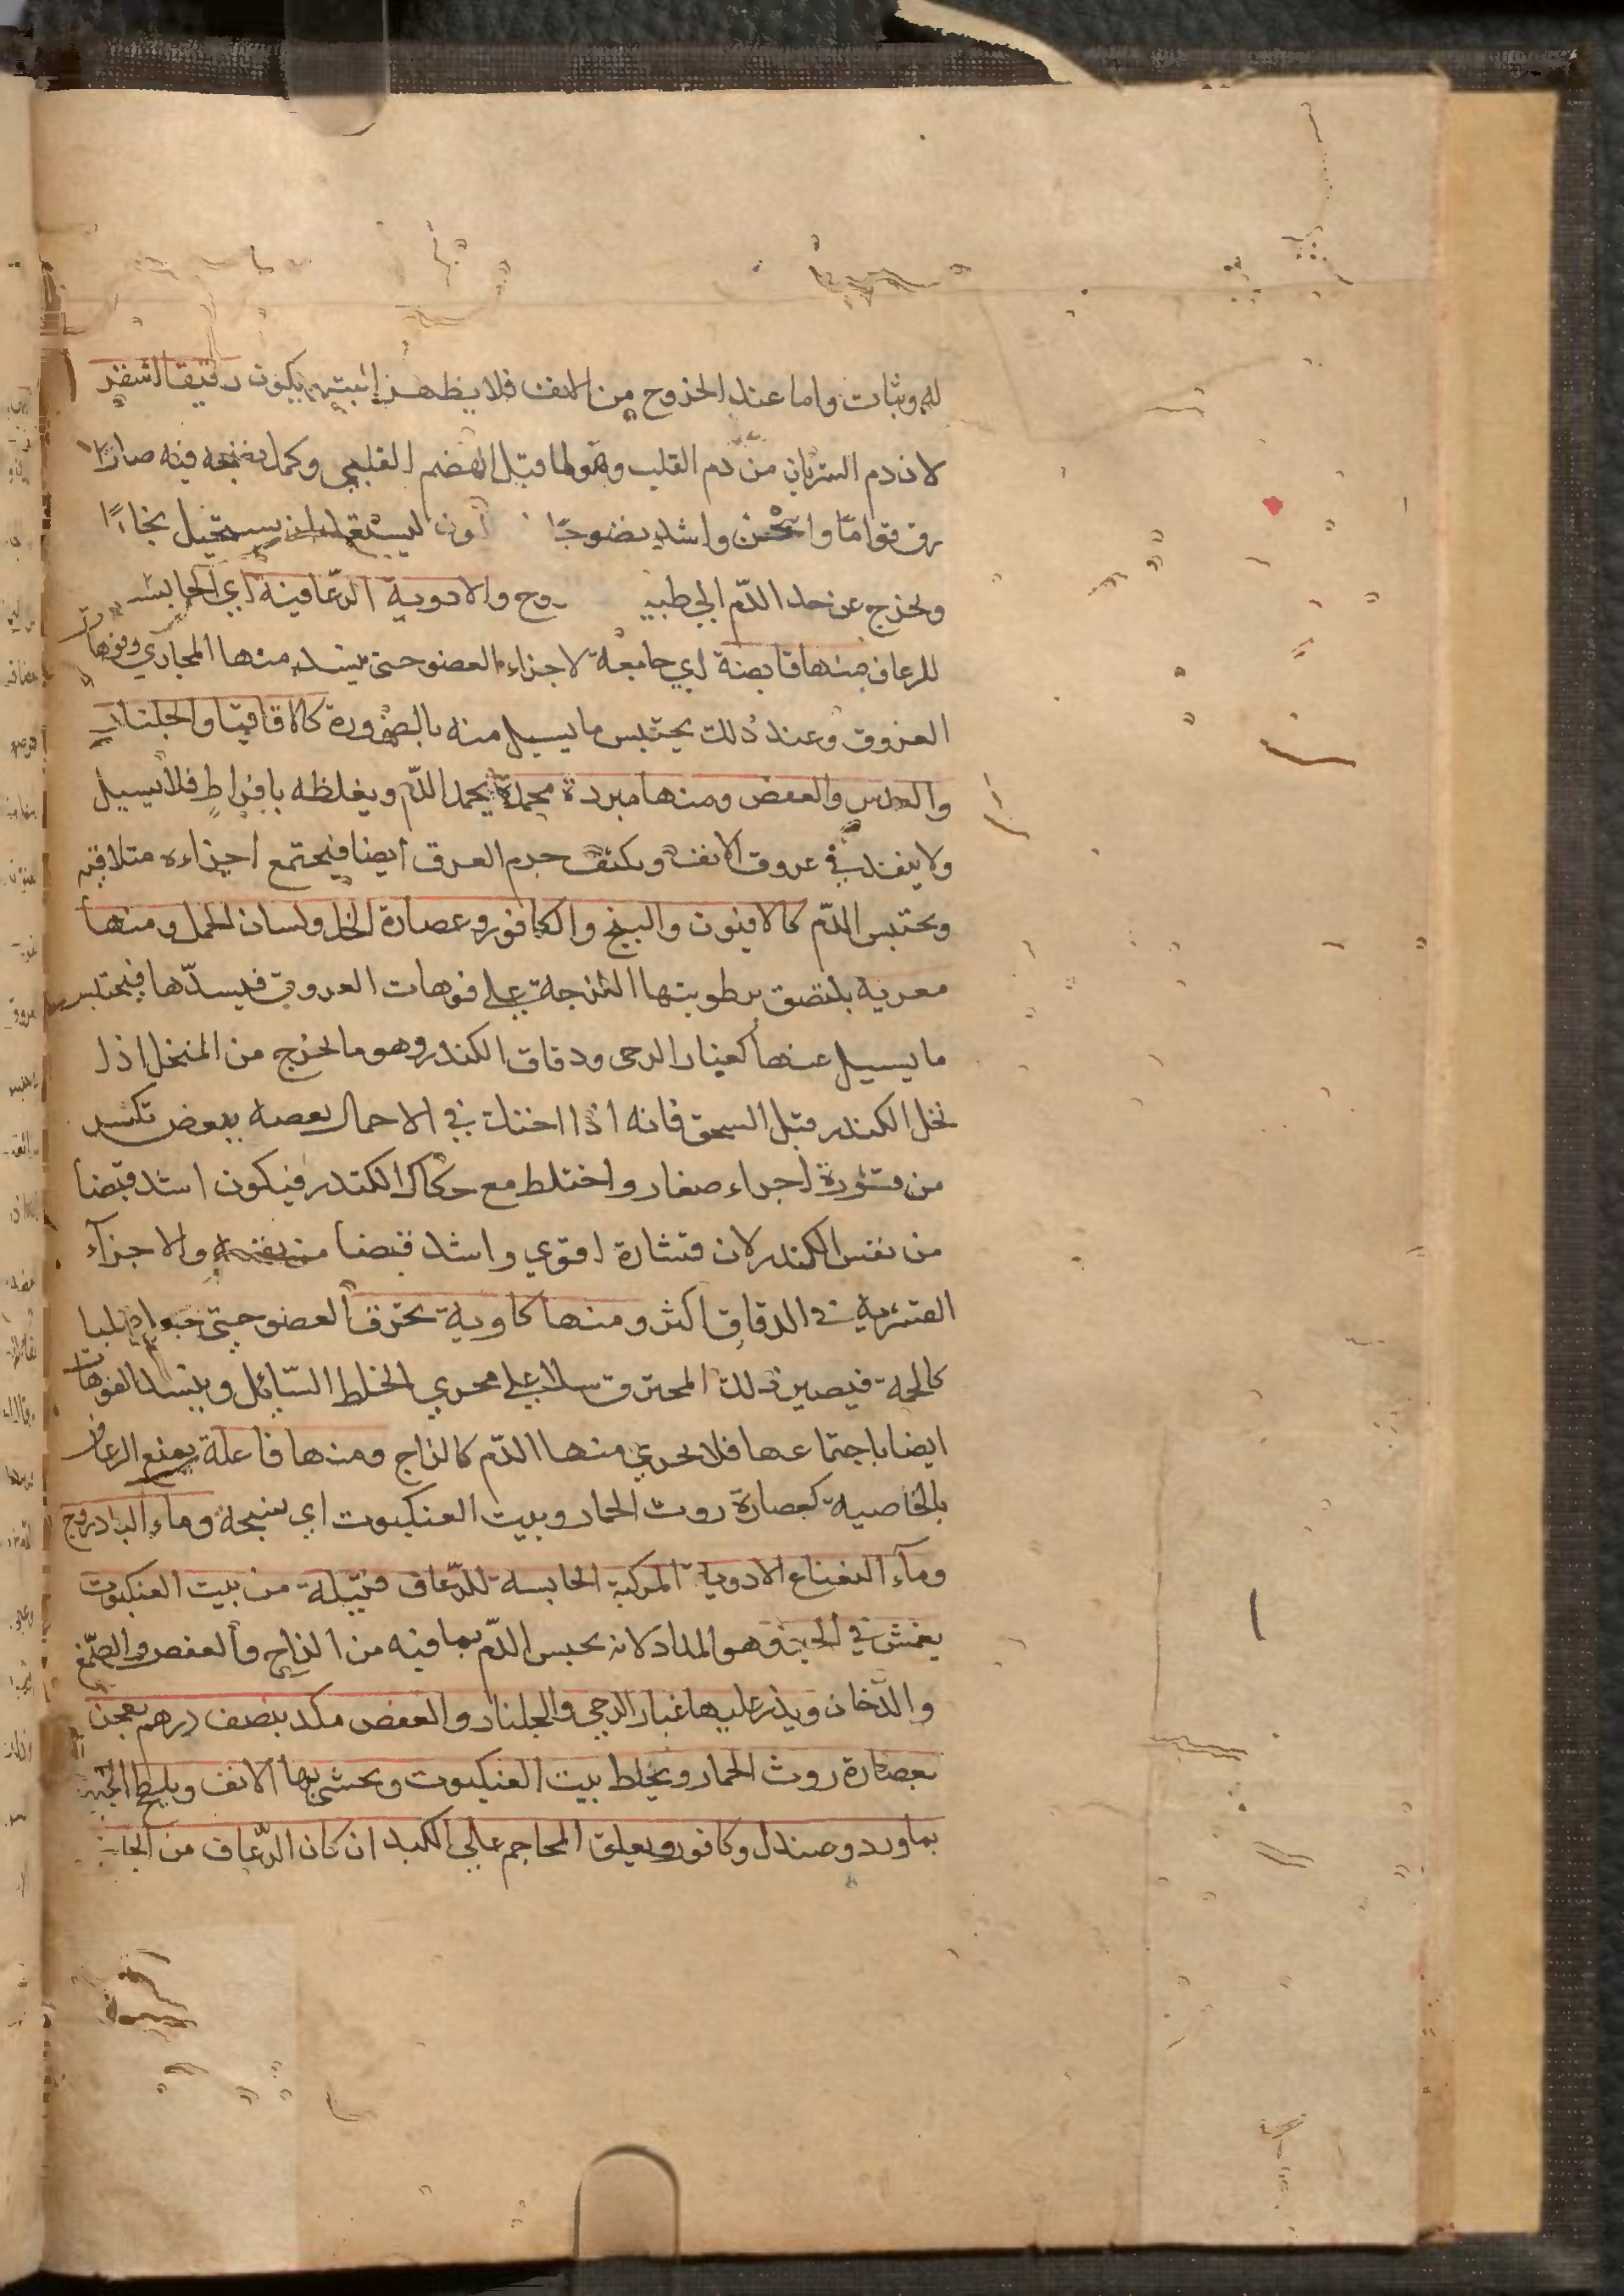 له وثبات واما عند الخروج من الانف فلا يظهر اثبته يكون رقيقا اشقر
لان دم الشريان من دم القلب وهو لما قبل الهضم القلبي وكمل نضجه فيه صار
ارق قواما واسخن واشد نضوجا لون ليستعد لان يستحيل بخارا
ويخرج عن حد الدم الى طبيـ ـروح والادوية الرعافية اي الحابسة
للرعاف منها قابضة اي جامعة لاجزاء العضو حتى ينسد منها المجاري وفوهات
العروق وعند ذلك يحتبس ما يسيل منه بالضرورة كالاقاقيا والجلنار
والعدس والعفص ومنها مبردة مجمدة يجمد الدم ويغلظه بافراط فلا يسيل
ولا ينفذ في عروق الانف ويكثف جرم العرق ايضا فيجتمع اجزاءه متلاقية
ويحتبس الدم كالافيون والبنج والكافور وعصارة الخل ولسان الحمل ومنها
مغرية يلتصق برطوبتها اللزجة على فوهات العروق فيسدها فيحتبس
ما يسيل عنها كغبار الرحى ودقاق الكندر وهو ما يخرج من المنخل اذا
نخل الكندر قبل السحق فانه اذا احتك في الاحمال بعضه ببعض تكسر
من قشوره اجزاء صغار واختلط مع حكاك الكندر فيكون اشد قبضا
من نفس الكندر لان قشاره اقوي واشد قبضا من نفسه والاجزآء
القشرية في الدقاق اكثر ومنها كاوية تحرق العضو حتى
كالحمة فيصير ذلك المحترق على مجري الخلط السايل وينسد الفوهات
ايضا باجتماعها فلا يجري منها الدم كالزاج ومنها فاعلة يمنع الرعاف
بالخاصية كعصارة روث الحمار وبيت العنكبوت اي نسجه وماء الباذروج
ومآء النعناع الادوية المركبة الحابسة للرعاف فتيلة من بيت العنكبوت
يغمس في الحبر وهو المداد لانه يحبس الدم بما فيه من الزاج والعفص والصمغ
والدخان ويذر عليها غبار الرحى والجلنار والعفص مكد بنصف درهم يعجن
بعصارة روث الحمار ويخلط ببيت العنكبوت ويحشى بها الانف ويلطخ الجبهة
بماورد وصندل وكافور ويعلق المحاجم على الكبد ان كان الرعاف من الجانب